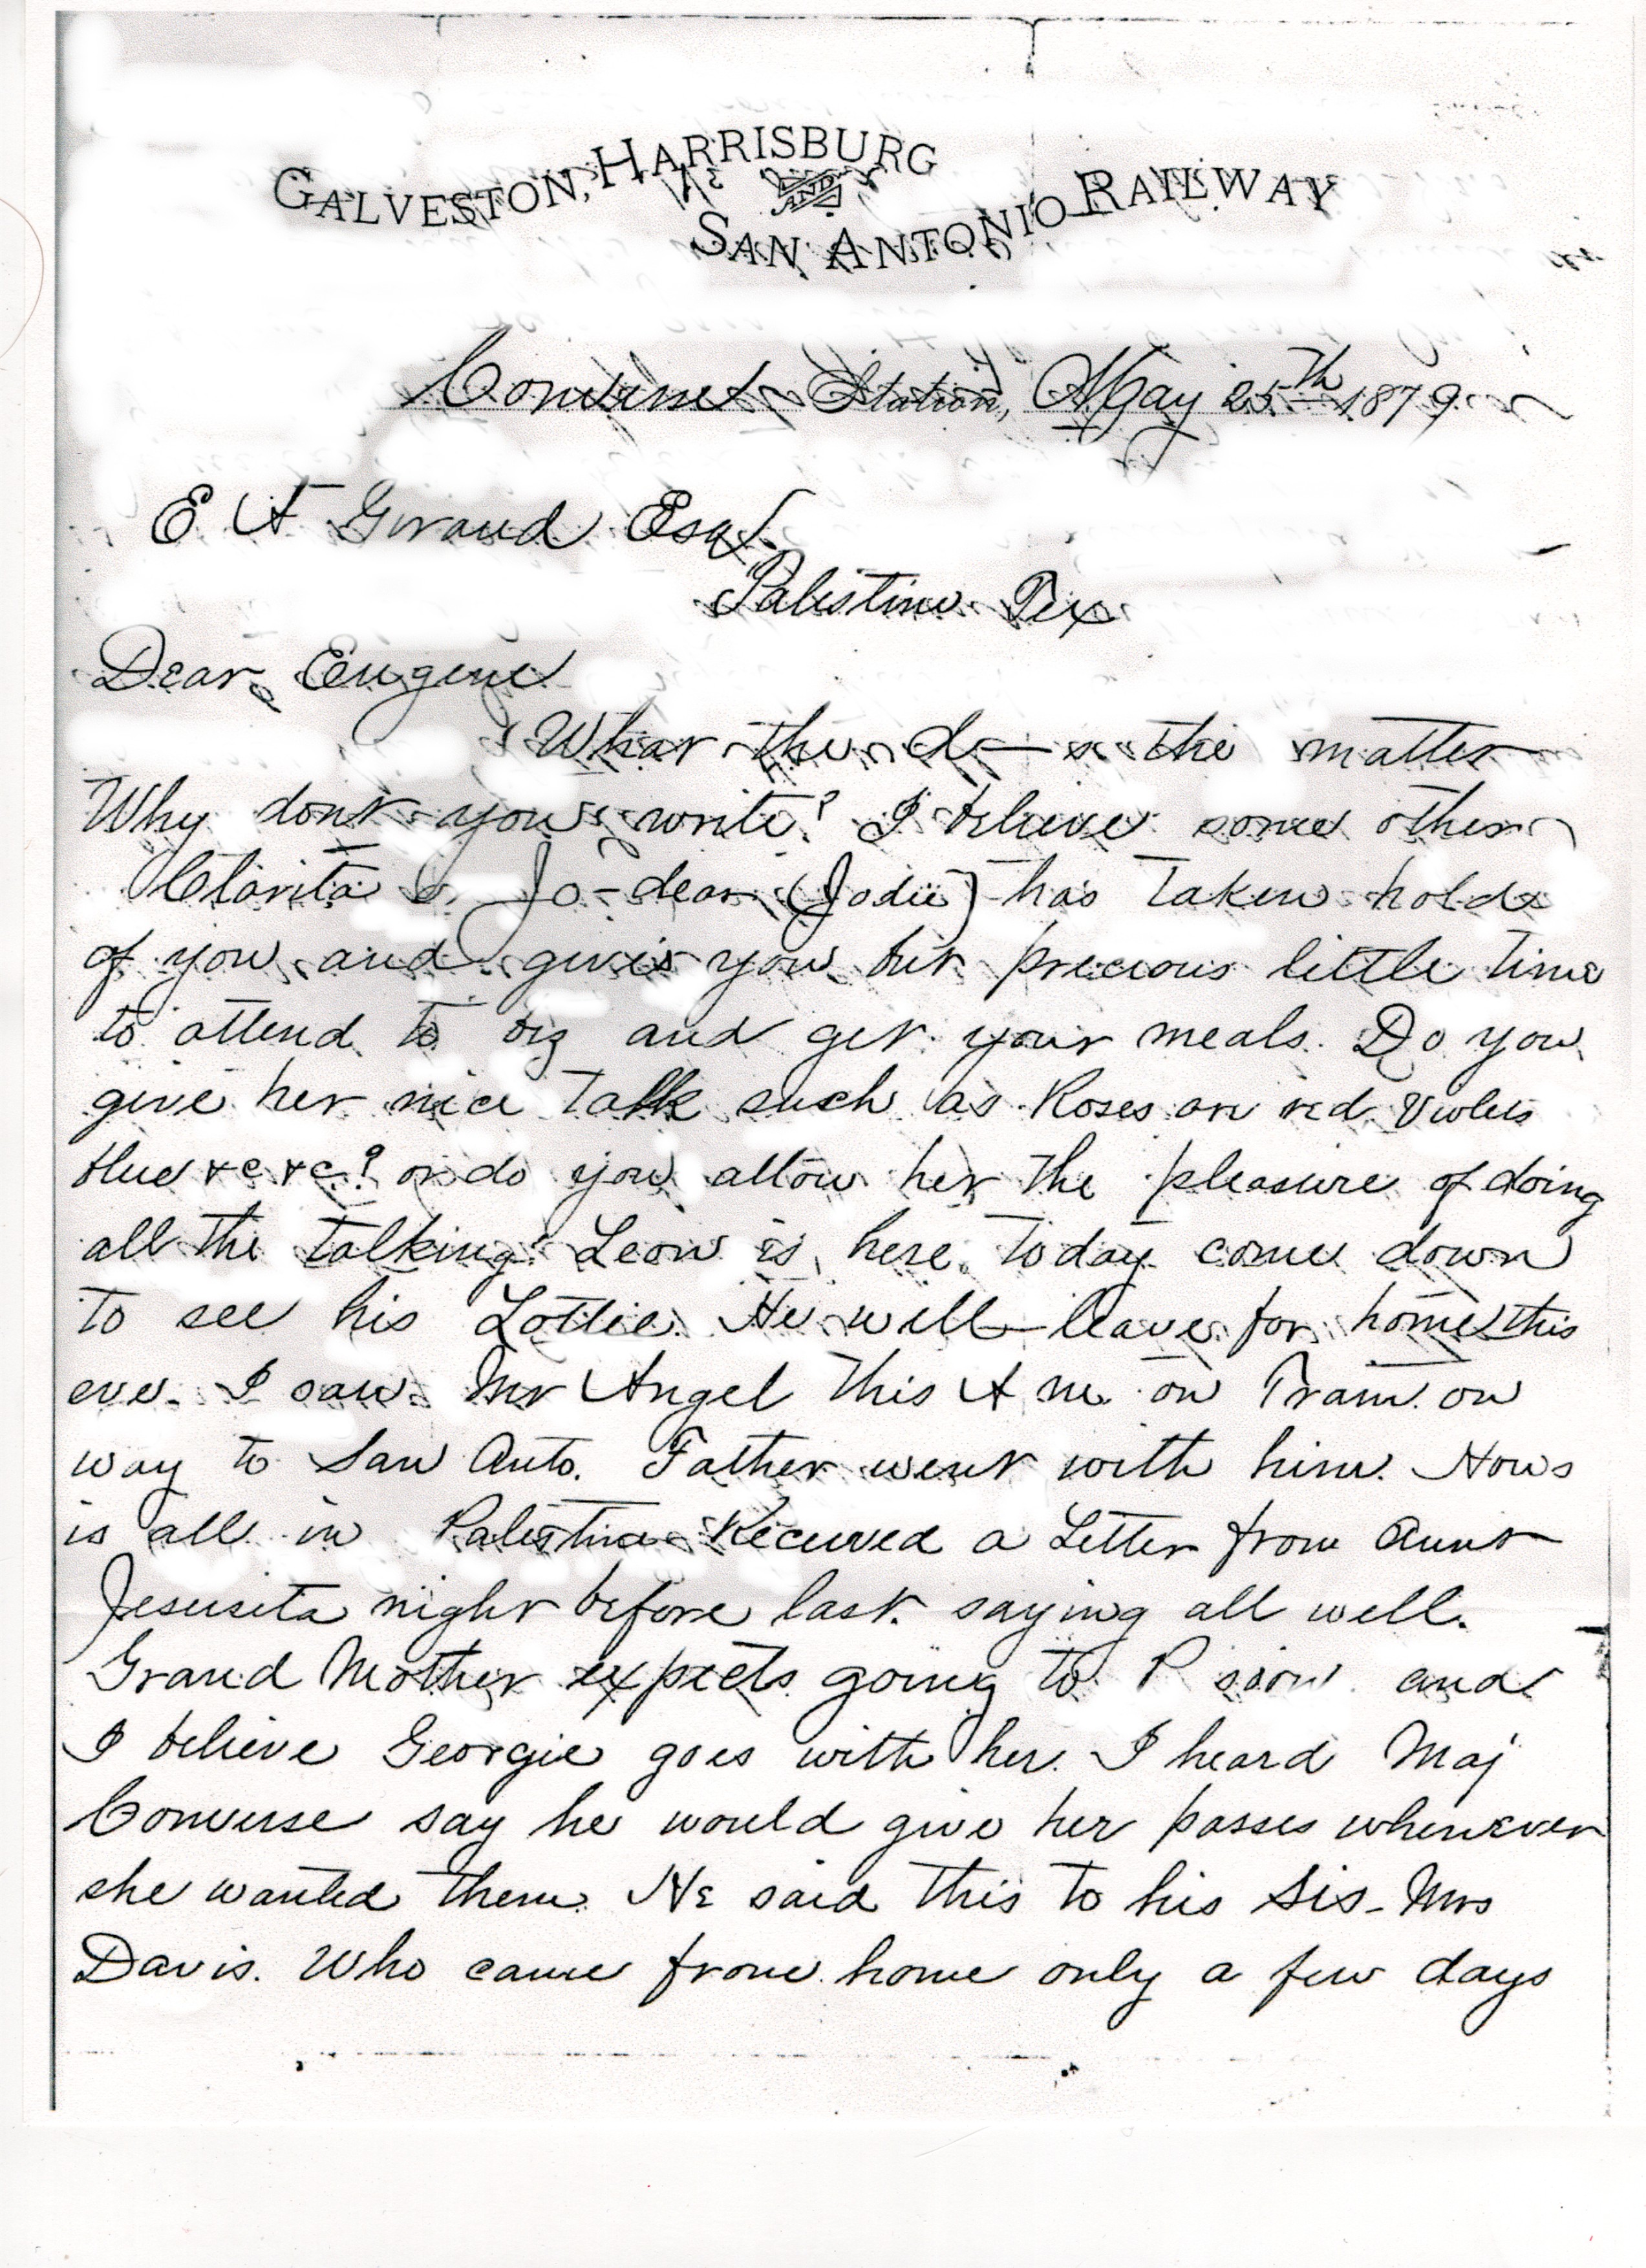 GALVESTON, HARRISBURG
AND
SAN ANTONIO RAILWAY
Converse Station, May 25th 1879
E A Giraud Esq.
Palestine Tex
Dear Eugene
What the d— is the matter
Why dont you write? I believe some other
Clarita or Jo-dear (Jodie) has taken hold
of you and gives you but precious little time
to attend to biz and get your meals. Do you
give her nice talk such as Roses are red Violets
blue &c &c? or do you allow her the pleasure of doing
all the talking? Leon is here today come down
to see his Lottie. He will leave for home this
eve. I saw Mr Angel this A m. on Train on
way to San Anto. Father went with him. Hows
is all in Palestine Received a Letter from Aunt
Jesusita night before last. saying all well.
Grand Mother expects going to P soon and
I believe Georgie goes with her. I heard Maj
Converse say he would give her passes whenever
she wanted them. He said this to his Sis - Mrs
Davis. Who came from home only a few days